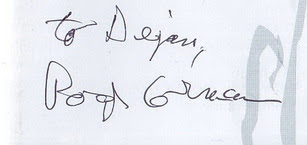 to Dejan,
Roger Corman